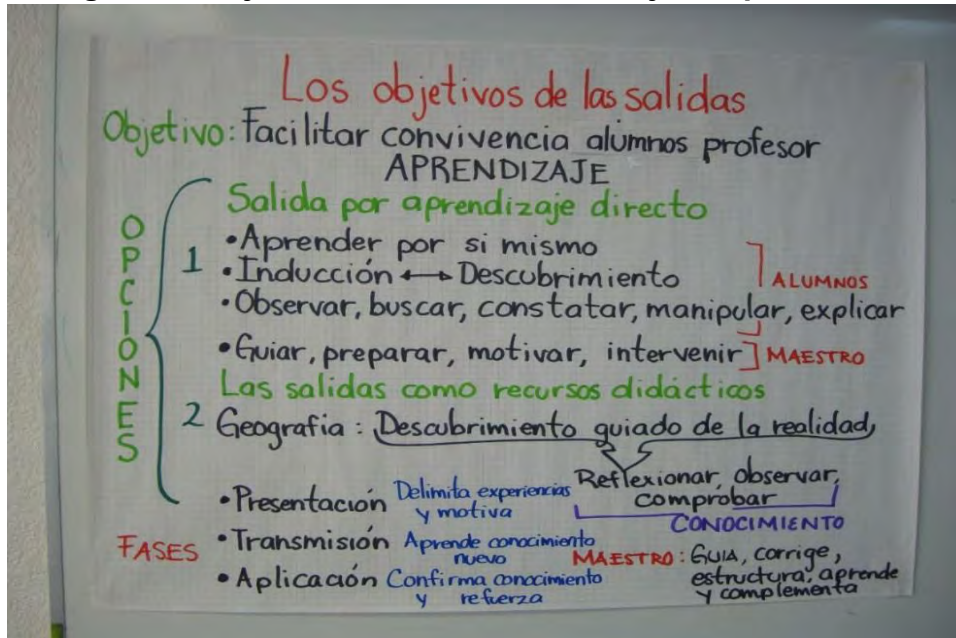 Los objetivos de las salidas
Objetivo: Facilitar convivencia alumnos profesor
APRENDIZAJE
OPCIONES
Salida por aprendizaje directo
1
•Aprender por si mismo
•Inducción ↔ Descubrimiento
ALUMNOS
•Observar, buscar, constatar, manipular, explicar
•Guiar, preparar, motivar, intervenir MAESTRO
Las salidas como recursos didácticos
2 Geografia: Descubrimiento guiado de la realidad
Reflexionar, observar,
comprobar
CONOCIMIENTO
FASES
•Presentación Delimita experiencias
y motiva
•Transmisión Aprende conocimiento
nuevo
•Aplicación Confirma conocimiento
y refuerza
MAESTRO: GUIA, corrige,
estructura, aprende
y complementa